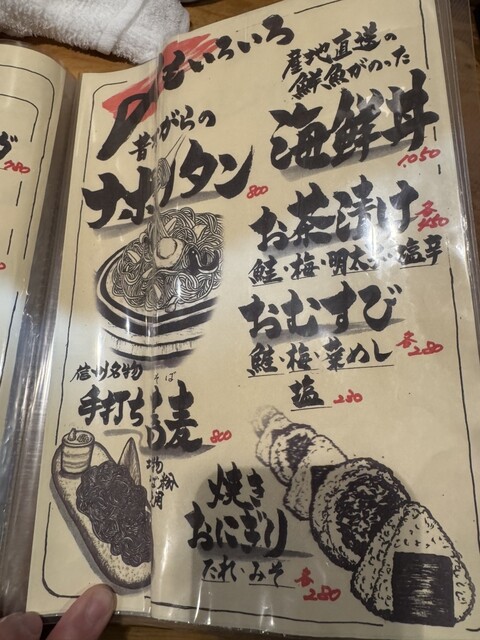 めしものいろいろ
産地直送の
鮮魚がのった
海鮮丼
1050
昔ながらの
ナポリタン
800
お茶漬け
各
鮭・梅・明太子・塩辛
おむすび
鮭・梅・菜めし
各280
塩
230
信州名物
そば
手打ち蕎麦
800
焼き
おにぎり
たれ・みそ
各280
780